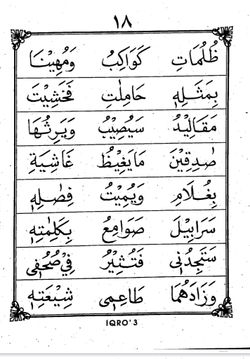 ١٨
ظُلُمَاتِ كَوَاكِبُ وَمُهِيْنًا
بِمَثَلِهِ حَامِلٰتِ فَخَشِيْتَ
مَقَالِيْدُ سَيُصِيْبُ وَيَرِثُهَا
صٰدِقِيْنَ مَايَغِيْظُ غَاشِيَةِ
بِغُلَامٍ وَيُمِيْتُ فِصٰلِهِ
سَرَابِيْلَ صَوَامِعُ بِكَلِمٰتِهِ
سَتَجِدُنِيْ فَتُثِيْرُ فِيْ صُحُفِيْ
وَزَادَهُمَا طَاعِمِيْ شِيْعَتِهِ
IQRO' 3